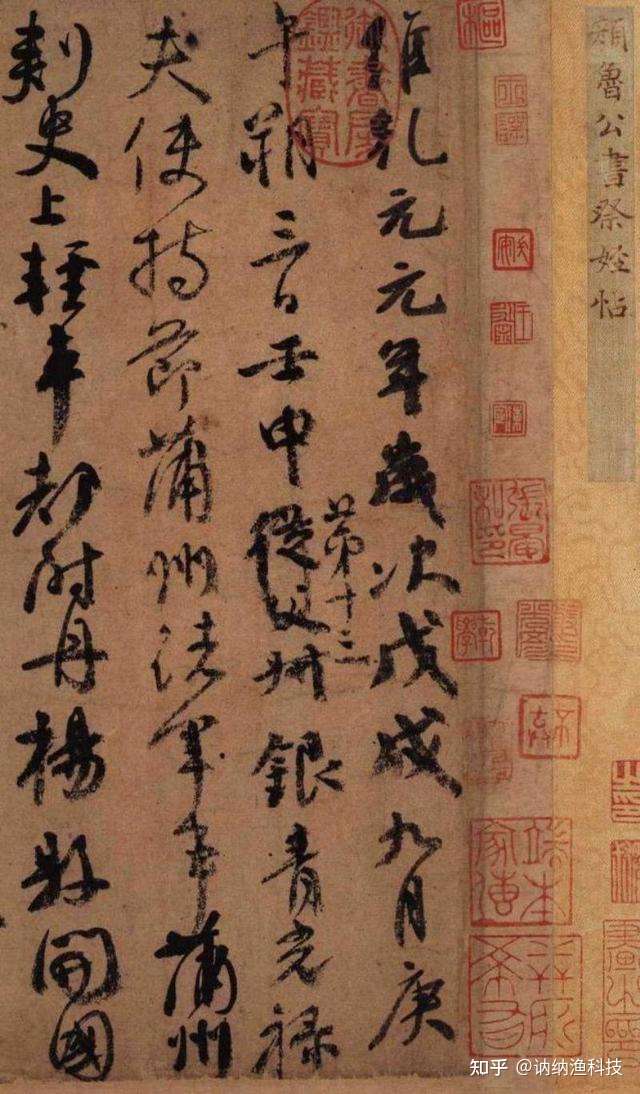 顏魯公書祭姪帖
維乾元元年歲次戊戌九月庚
午朔三日壬申從父叔銀青光祿
第十三
夫使持節蒲州諸軍事蒲州
刺史上輕車都尉丹楊縣開國
御書房鑑藏寶
張晏私印
知乎 @讷纳渔科技